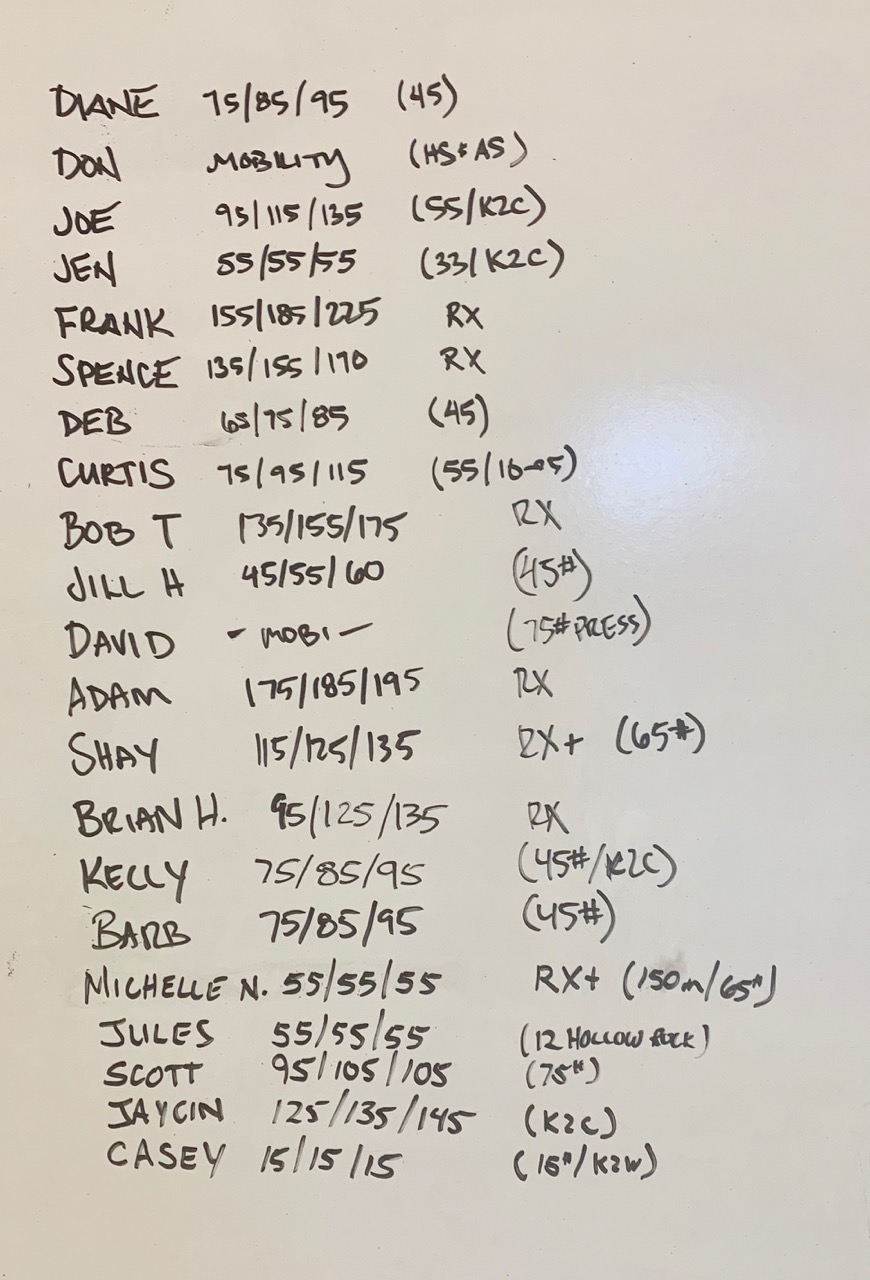 DIANE 75/85/95 (45)
DON MOBILITY (HS & AS)
JOE 95/115/135 (55/K2C)
JEN 55/55/55 (33/K2C)
FRANK 155/185/225 RX
SPENCE 135/155/170 RX
DEB 65/75/85 (45)
CURTIS 75/95/115
BOB T 135/155/175 RX
JILL H 45/55/60 (45#)
DAVID - MOBI - (75# PRESS)
ADAM 175/185/195 RX
SHAY 115/125/135 RX+ (65#)
BRIAN H. 95/125/135 RX
KELLY 75/85/95 (45#/K2C)
BARB 75/85/95 (45#)
MICHELLE N. 55/55/55 RX+ (150m/65#)
JULES 55/55/55 (12 HOLLOW ROCK)
SCOTT 95/105/105 (75#)
JAYCIN 125/135/145 (K2C)
CASEY 15/15/15 (15#/K2W)